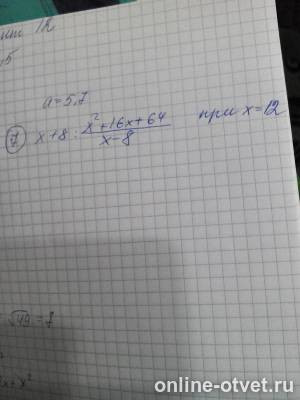 ,5
a=5,7
7 x+8 : x²+16x+64 / x-8 при x=12
= √49 = 7
x+x²
online-otvet.ru